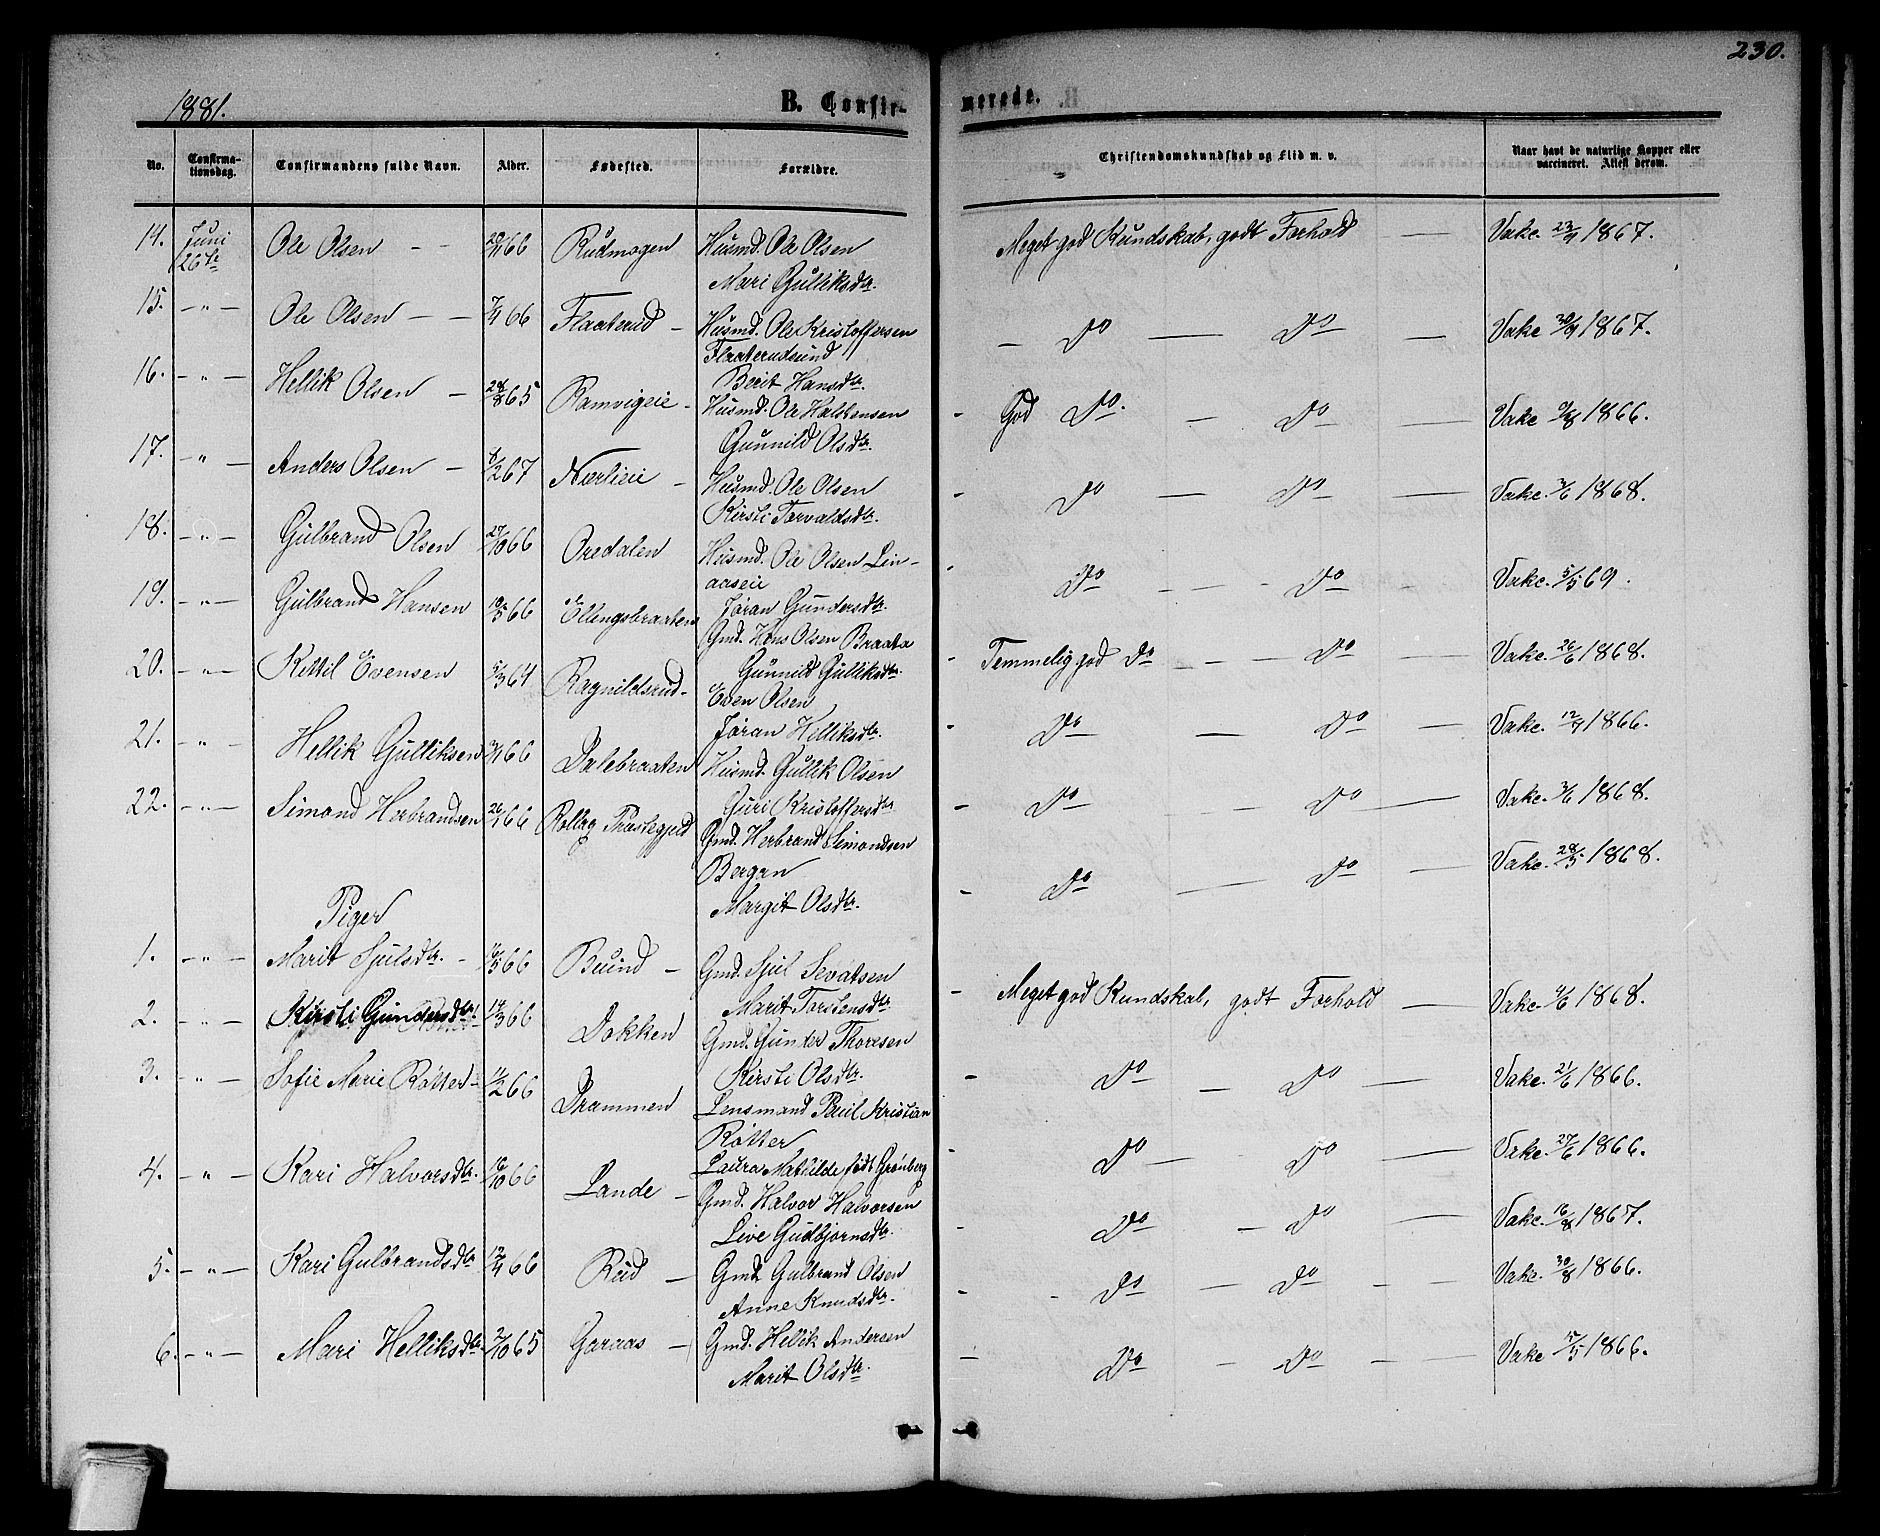 230.
1881.
B. Confir-
merede.
No.
Confirma-
tionsdag.
Confirmandens fulde Navn.
Alder.
Fødested.
Forældre.
Christendomskundskab og Flid m. v.
Naar havt de naturlige Kopper eller
vaccineret. Attest derom.
14. Juni 26de Ole Olsen - - 66 Rudmogen Husmd. Ole Olsen
Mari Gulliksdtr.
Meget god Kundskab, godt Forhold — Vake. 23/9 1867.
15. - " - Ole Olsen - - 66 Flaaterud - Husmd. Ole Kristoffersen
Flaaterudsund
Berit Hansdtr.
- Do — Do — Vake 30/9 1867.
16. - " - Hellik Olsen - 28/8 65 Ramvigeie - Husmd. Ole Halstensen
Gunnild Olsdtr.
- God Do. - Do — Vake 9/8 1866.
17. - " - Anders Olsen - 8/2 67 Nærlieie - Husmd. Ole Olsen
Kirsti Torvaldsdtr.
- Do — Do — Vake. 3/6 1868.
18. - " - Gulbrand Olsen 27/10 66 Oredalen Husmd. Ole Olsen Lin-
aaseie
Jøran Gundersdtr.
- Do - - - Do - Vake. 5/5 69.
19. - " - Gulbrand Hansen 19/5 66 Ellingsbraaten Gmd. Hans Olsen Braata
Gunnild Gulliksdtr.
- Temmelig god Do - - - Do — Vake. 26/6 1868.
20. - " - Kittil Evensen 5/3 64 Ragnildsrud - Even Olsen
Jøran Helliksdtr.
- Do — Do — Vake. 12/7 1866.
21. - " - Hellik Gulliksen 66 Dalebraaten Husmd. Gullik Olsen
Guri Kristoffersdtr
- Do - Do — Vake. 3/6 1868.
22. - " - Simond Herbrandsen 26/1 66 Rollag Præstegjeld Gmd. Herbrand Simondsen
Bergan
Margit Olsdtr.
- Do — Do — Vake. 28/5 1868.
Piger
1. - " - Marit Sjulsdtr. - 16/5 66 Buind - Gmd. Sjul Sevatsen
Marit Torstensdtr
- Meget god Kundskab, godt Forhold — Vake. 4/6 1868.
2. - " - Kirsti Gundersdtr 14/3 66 Dokken Gmd. Gunder Thoresen
Kirsti Olsdtr.
- Do - Do — Vake. 21/6 1866.
3. - " - Sofie Marie Røtter - 11/2 66 Drammen Lensmand Paul Kristian
Røtter
Laura Mathilde født Grønberg
- Do — Do — Vake. 27/6 1866.
4. - " - Kari Halvorsdtr. 16/10 66 Lande - Gmd. Halvor Halvorsen
Live Gudbjørnsdtr.
- Do - Do — Vake. 16/8 1867.
5. - " - Kari Gulbrandsdtr 12/4 66 Rud - Gmd Gulbrand Olsen
Anne Knudsdtr.
- - Do - Do — Vake. 30/8 1866.
6. - " - Mari Helliksdtr. 2/10 65 Garaas - Gmd. Hellik Andersen
Marit Olsdtr.
- Do - Do - - Vake 5/5 1866.